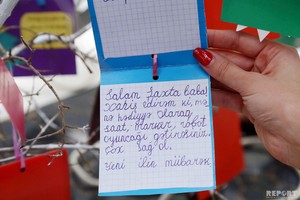 Salam Şaxta baba!
Xahiş edirəm ki, mə-
nə hədiyyə olaraq
saat, marker, robot
oyuncağı gətirəsiniz.
Çox sağ ol.
Yeni ilin mübarək
REPORT